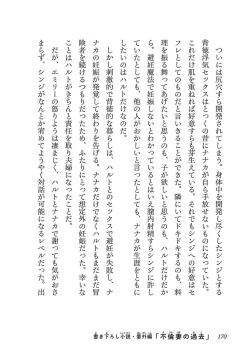 ついには尻穴すら開発されてしまう。身体中を開発し尽くしたシンジとする
背徳浮気セックスはとっくの昔にナナカが自ら手放せないものになっていた。
これだけ肌を重ねれば好意すらも芽生えている。それでもシンジへの好意はセ
フレとしてのものだと言いきることができた。隣にいてドキドキするのも、料
理を振る舞ってあげたいと思うのも、子が欲しいと思うのも、ハルトだけだか
ら。避妊魔法で妊娠しないとはいえ膣内射精すらシンジに好き放題させてしまっ
ていたとしても、他の人がおかしいと言ったとしても、ナナカが生涯をともに
したいのはハルトだけなのだ。
しかし刺激的で背徳的な暮らしは、ハルトとのセックスで避妊魔法が失敗し、ナ
ナカの妊娠が発覚して終わりを告げる。ナナカだけでなくハルトもまだまだ冒
険者を続けるつもりだったため、ハルトにとっては想定外の妊娠だった。幸いな
ことはハルトがきちんと責任を取り夫婦になったことだ。
だが、エミリーの怒りようは凄まじく、ハルトとナナカで謝っても気がおさ
まらず、シンジがなんとか宥めてようやく対話が可能になるレベルだった。出
書き下ろし小説・番外編「不倫妻の過去」 170